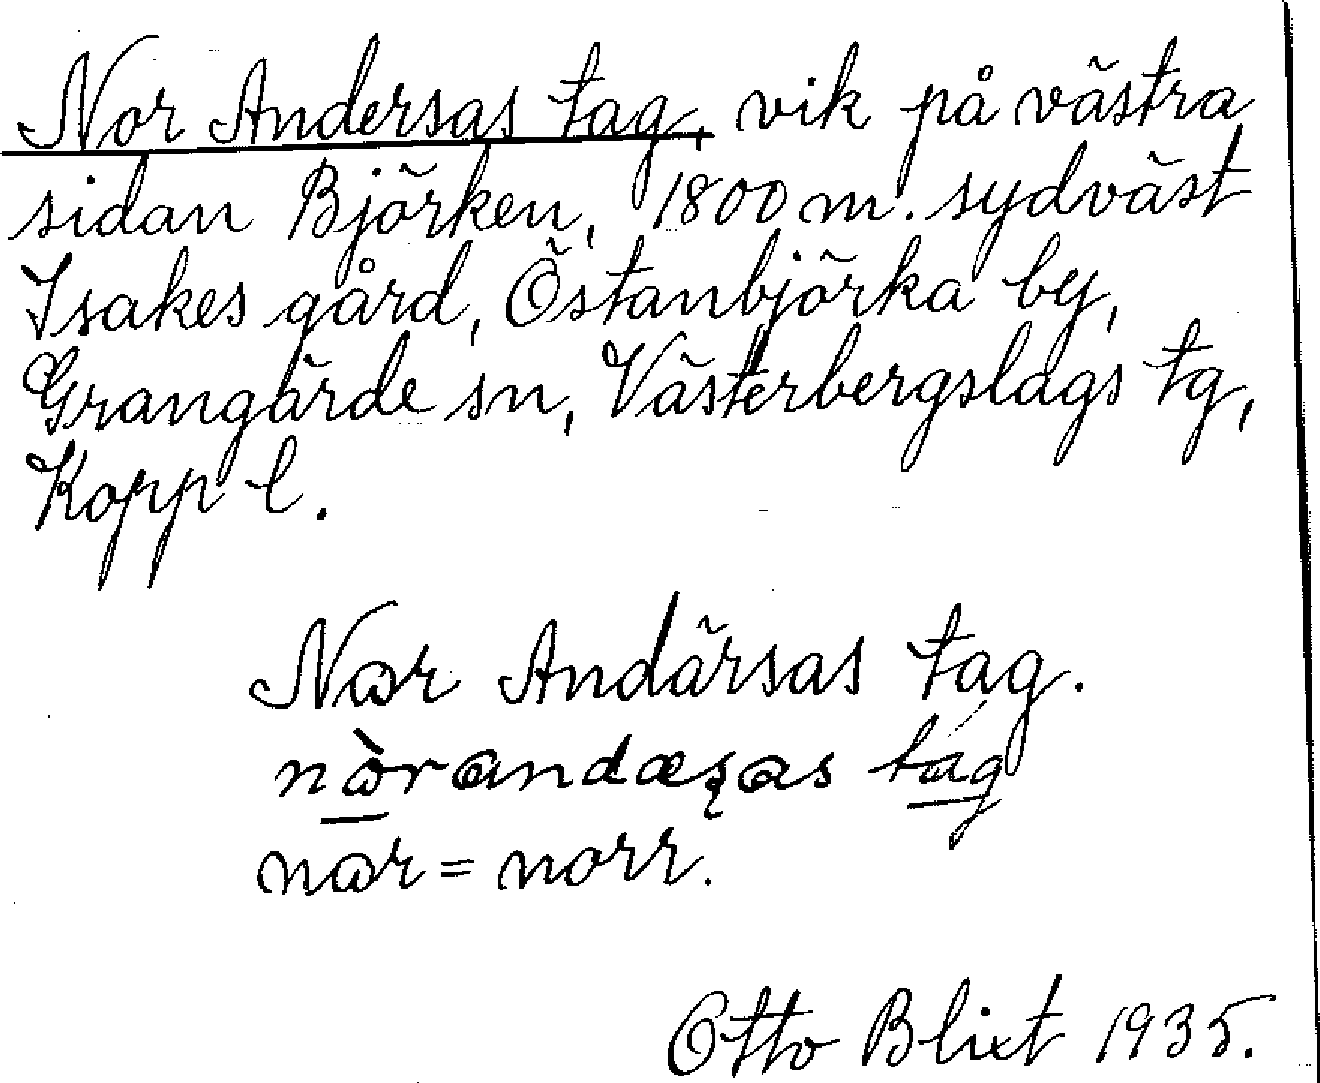 Nor Andersas tag, vik på västra
sidan Björken, 1800 m. sydväst
Isakes gård, Östanbjörka by,
Grangärde sn, Västerbergslags tg,
Kopp l.
Nɷr Andärsas tag.
nɷ̀randæʂas tág
nɷr = norr.
Otto Blixt 1935.